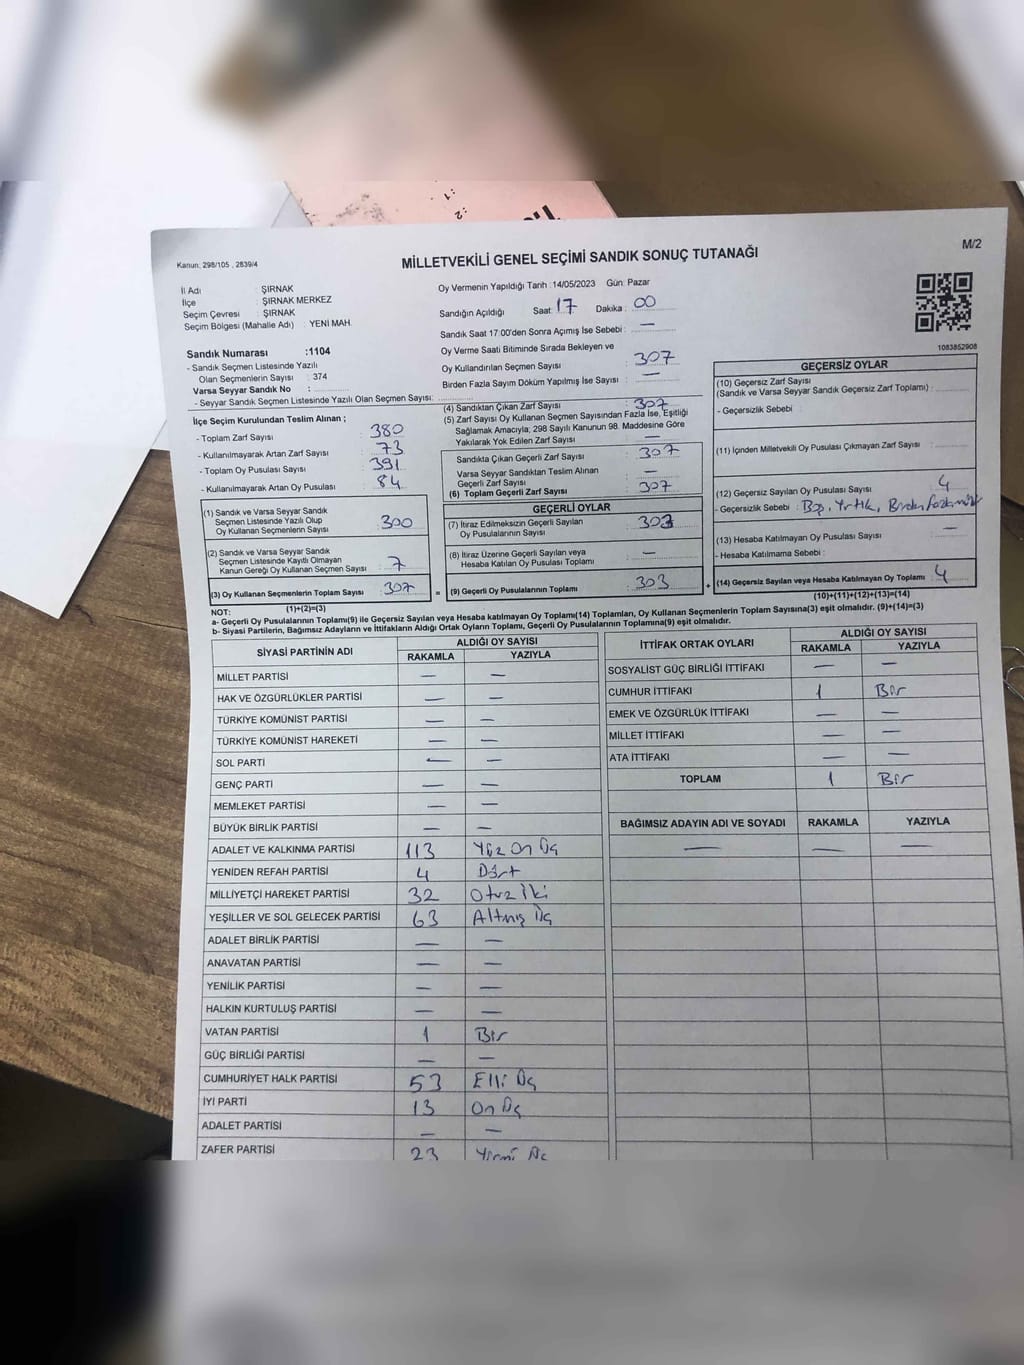 M/2
Kanun: 298/105 , 2839/4
MİLLETVEKİLİ GENEL SEÇİMİ SANDIK SONUÇ TUTANAĞI
İl Adı : ŞIRNAK
İlçe : ŞIRNAK MERKEZ
Seçim Çevresi : ŞIRNAK
Seçim Bölgesi (Mahalle Adı) : YENİ MAH.
Sandık Numarası :1104
- Sandık Seçmen Listesinde Yazılı
Olan Seçmenlerin Sayısı : 374
Varsa Seyyar Sandık No :
- Seyyar Sandık Seçmen Listesinde Yazılı Olan Seçmen Sayısı:
Oy Vermenin Yapıldığı Tarih :14/05/2023 Gün: Pazar
Sandığın Açıldığı Saat: 17 Dakika : 00
Sandık Saat 17:00'den Sonra Açımış İse Sebebi : —
Oy Verme Saati Bitiminde Sırada Bekleyen ve
Oy Kullandırılan Seçmen Sayısı : 307
Birden Fazla Sayım Döküm Yapılmış İse Sayısı : —
1083852908
İlçe Seçim Kurulundan Teslim Alınan ;
- Toplam Zarf Sayısı : 380
- Kullanılmayarak Artan Zarf Sayısı : 73
- Toplam Oy Pusulası Sayısı : 391
- Kullanılmayarak Artan Oy Pusulası : 84
(1) Sandık ve Varsa Seyyar Sandık
Seçmen Listesinde Yazılı Olup
Oy Kullanan Seçmenlerin Sayısı : 300
(2) Sandık ve Varsa Seyyar Sandık
Seçmen Listesinde Kayıtlı Olmayan
Kanun Gereği Oy Kullanan Seçmen Sayısı : 7
(3) Oy Kullanan Seçmenlerin Toplam Sayısı : 307
(1)+(2)=(3)
(4) Sandıktan Çıkan Zarf Sayısı : 307
(5) Zarf Sayısı Oy Kullanan Seçmen Sayısından Fazla İse, Eşitliği
Sağlamak Amacıyla; 298 Sayılı Kanunun 98. Maddesine Göre
Yakılarak Yok Edilen Zarf Sayısı : —
Sandıkta Çıkan Geçerli Zarf Sayısı : 307
Varsa Seyyar Sandıktan Teslim Alınan
Geçerli Zarf Sayısı : —
(6) Toplam Geçerli Zarf Sayısı : 307
GEÇERLİ OYLAR
(7) İtiraz Edilmeksizin Geçerli Sayılan
Oy Pusulalarının Sayısı : 303
(8) İtiraz Üzerine Geçerli Sayılan veya
Hesaba Katılan Oy Pusulası Toplamı : —
= (9) Geçerli Oy Pusulalarının Toplamı : 303
GEÇERSİZ OYLAR
(10) Geçersiz Zarf Sayısı
(Sandık ve Varsa Seyyar Sandık Geçersiz Zarf Toplamı) :
- Geçersizlik Sebebi :
(11) İçinden Milletvekili Oy Pusulası Çıkmayan Zarf Sayısı :
(12) Geçersiz Sayılan Oy Pusulası Sayısı : 4
- Geçersizlik Sebebi : Boş, Yırtık, Birden fazla
(13) Hesaba Katılmayan Oy Pusulası Sayısı : —
- Hesaba Katılmama Sebebi :
+ (14) Geçersiz Sayılan veya Hesaba Katılmayan Oy Toplamı : 4
(10)+(11)+(12)+(13)=(14)
NOT:
a- Geçerli Oy Pusulalarının Toplamı(9) ile Geçersiz Sayılan veya Hesaba katılmayan Oy Toplamı(14) Toplamları, Oy Kullanan Seçmenlerin Toplam Sayısına(3) eşit olmalıdır. (9)+(14)=(3)
b- Siyasi Partilerin, Bağımsız Adayların ve İttifakların Aldığı Ortak Oyların Toplamı, Geçerli Oy Pusulalarının Toplamına(9) eşit olmalıdır.
SİYASİ PARTİNİN ADI ALDIĞI OY SAYISI
RAKAMLA YAZIYLA
MİLLET PARTİSİ — —
HAK VE ÖZGÜRLÜKLER PARTİSİ — —
TÜRKİYE KOMÜNİST PARTİSİ — —
TÜRKİYE KOMÜNİST HAREKETİ — —
SOL PARTİ — —
GENÇ PARTİ — —
MEMLEKET PARTİSİ — —
BÜYÜK BİRLİK PARTİSİ — —
ADALET VE KALKINMA PARTİSİ 113 Yüz On Üç
YENİDEN REFAH PARTİSİ 4 Dört
MİLLİYETÇİ HAREKET PARTİSİ 32 Otuz İki
YEŞİLLER VE SOL GELECEK PARTİSİ 63 Altmış Üç
ADALET BİRLİK PARTİSİ — —
ANAVATAN PARTİSİ — —
YENİLİK PARTİSİ — —
HALKIN KURTULUŞ PARTİSİ — —
VATAN PARTİSİ 1 Bir
GÜÇ BİRLİĞİ PARTİSİ — —
CUMHURİYET HALK PARTİSİ 53 Elli Üç
İYİ PARTİ 13 On Üç
ADALET PARTİSİ — —
ZAFER PARTİSİ 23 Yirmi Üç
İTTİFAK ORTAK OYLARI ALDIĞI OY SAYISI
RAKAMLA YAZIYLA
SOSYALİST GÜÇ BİRLİĞİ İTTİFAKI — —
CUMHUR İTTİFAKI 1 Bir
EMEK VE ÖZGÜRLÜK İTTİFAKI — —
MİLLET İTTİFAKI — —
ATA İTTİFAKI — —
TOPLAM 1 Bir
BAĞIMSIZ ADAYIN ADI VE SOYADI RAKAMLA YAZIYLA
— — —